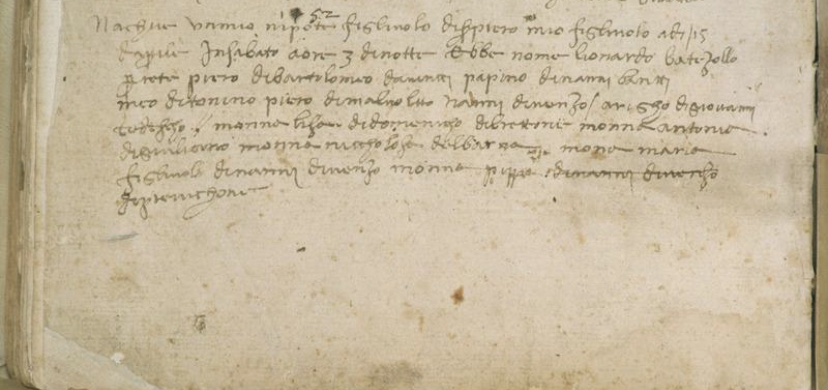 52
Nachue unmio nipote figliuolo diser piero mio figliuolo adi 15
daprile Insabato aore 3 dinotte Ebbe nome lionardo batezollo
prete piero dibartolomeo davinci papino dinanni banti
meo ditonino piero dimalvolto Nanni divenzo / arigho digiovanni
tedescho / monna lisa didomenicho dibrettone monna antonia
digiuliano monna nicholosa delbarna mona maria
figliuola dinanni divenzo monna pippa dinanni divenzo
diprevichone